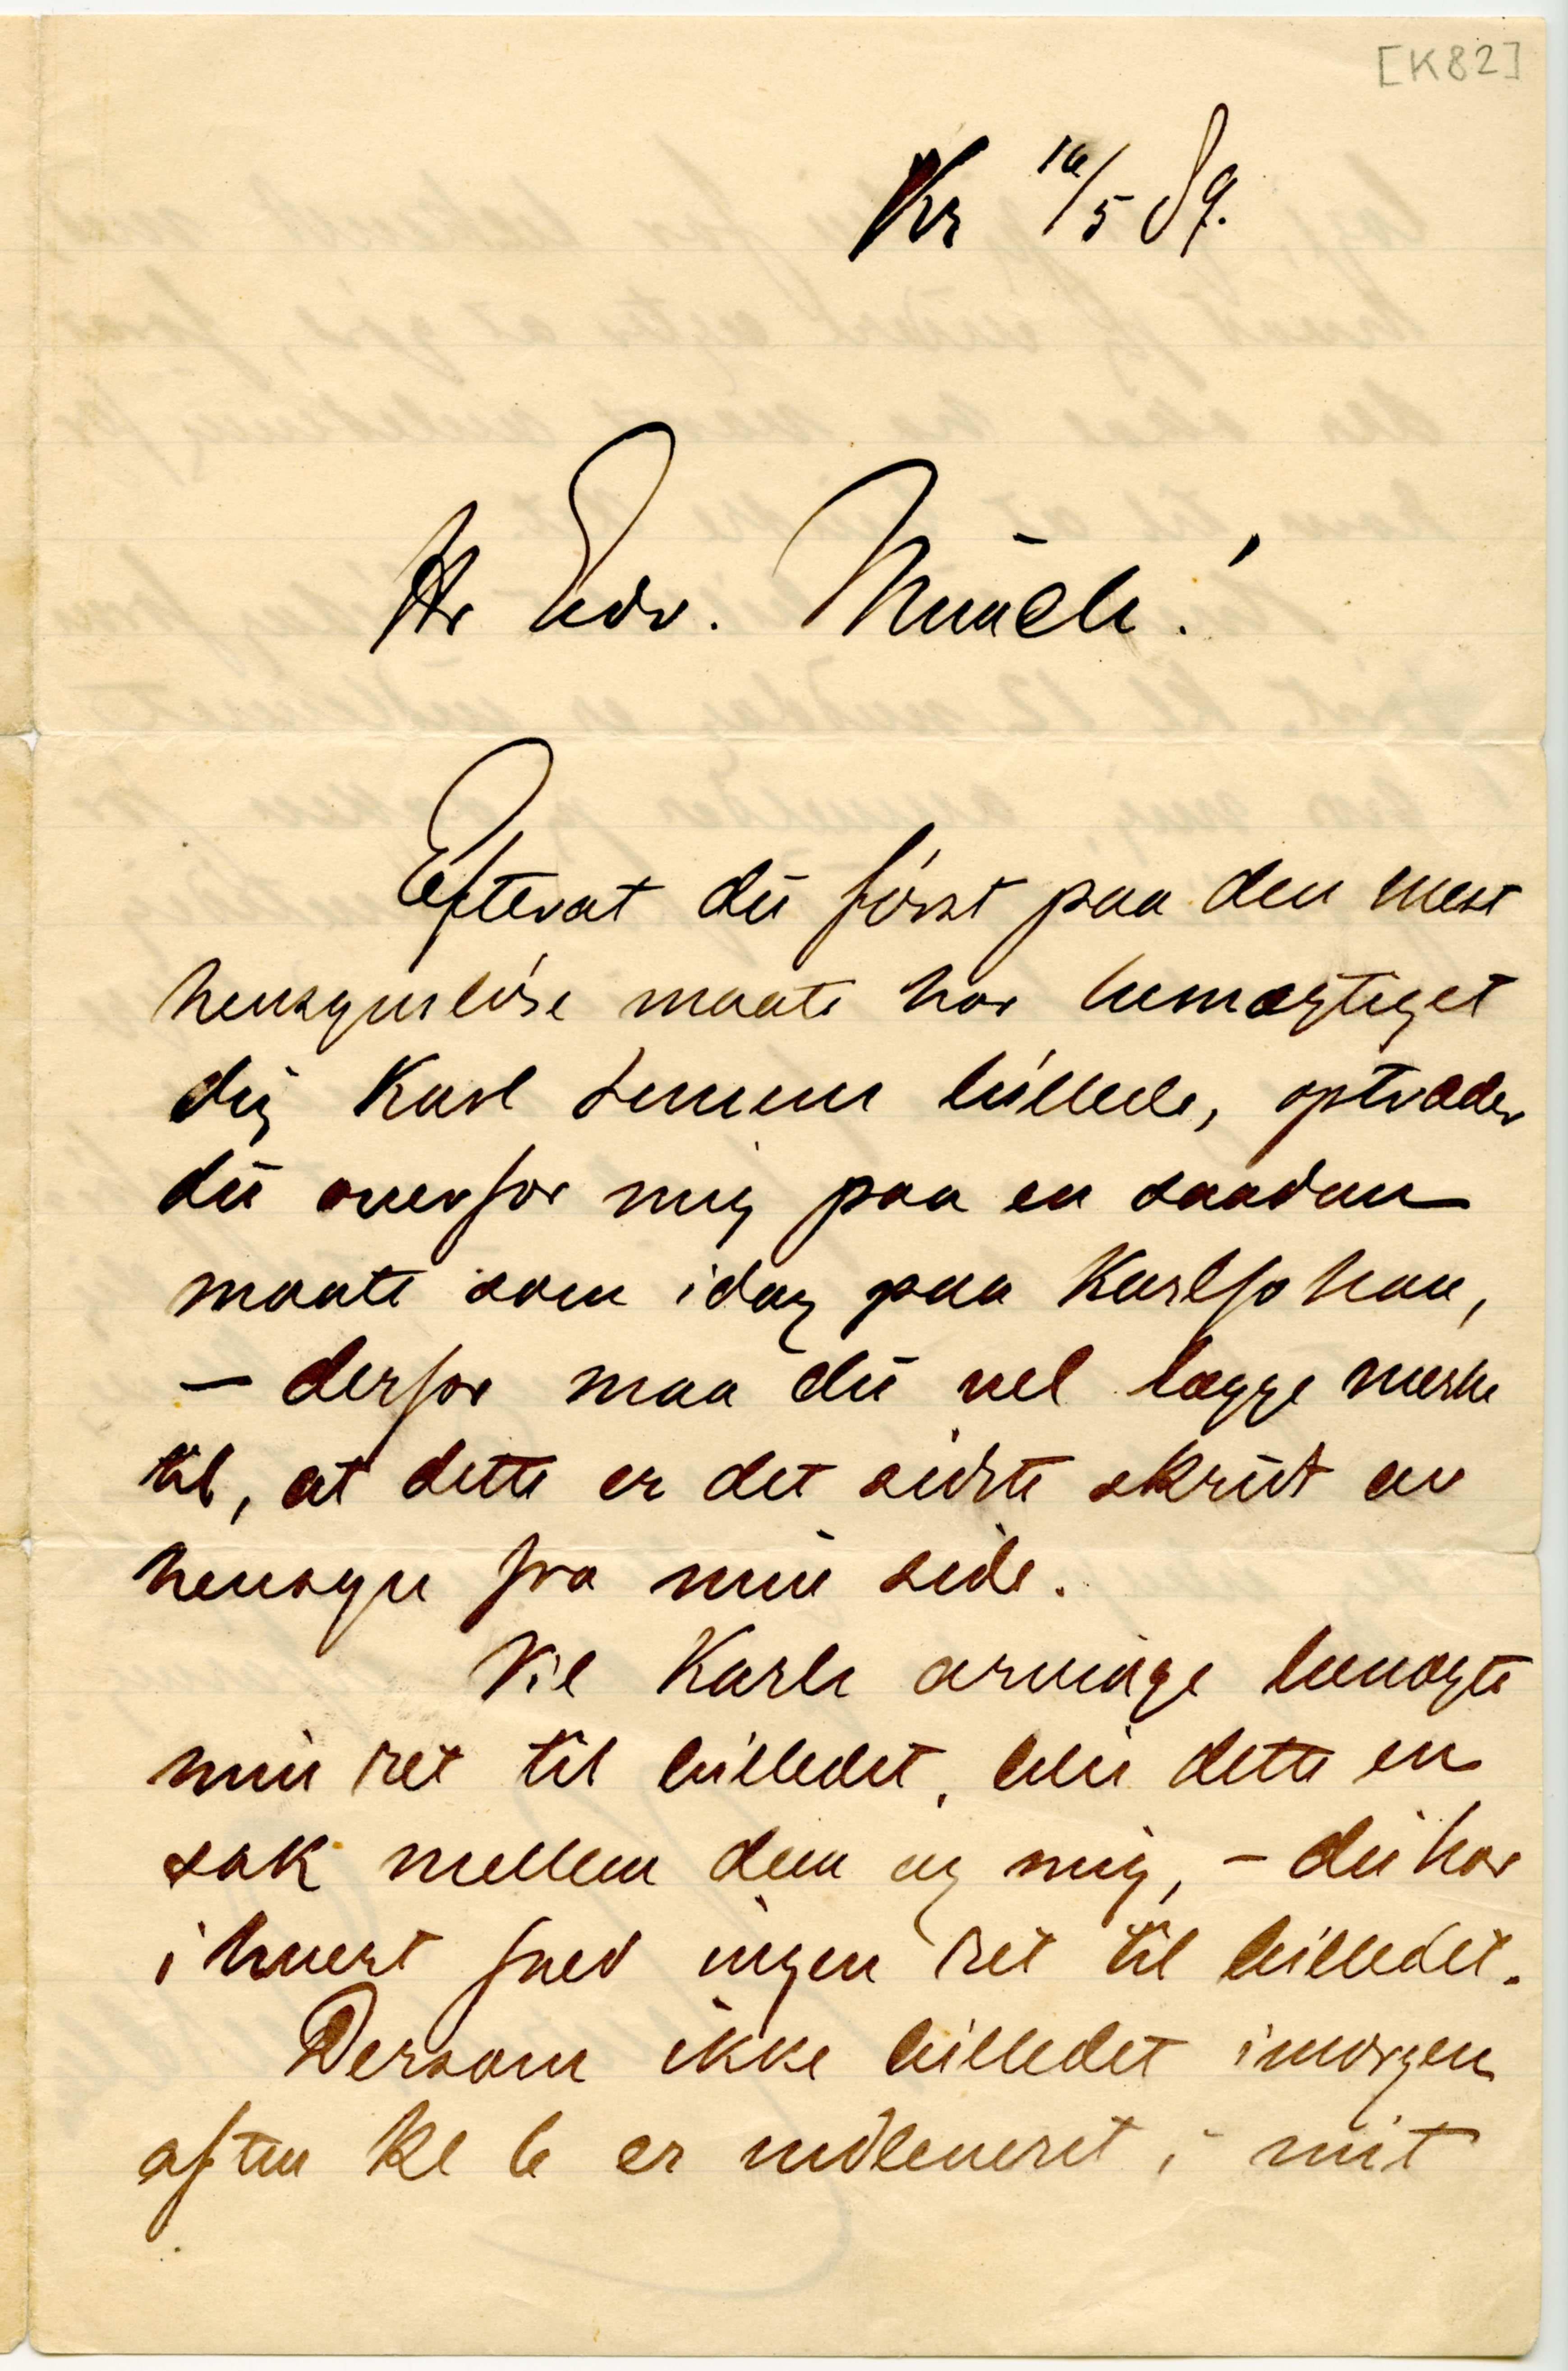 [K82]
Kr 16/5 89.
Hr Edv. Munch!
Efterat du først paa den mest
hensynsløse maate har bemægtiget
dig Karl Jensens billede, optræder
du overfor mig paa en saadan
maate som idag paa Karl Johan,
– derfor maa du vel lægge merke
til, at dette er det sidste skridt av
hensyn fra min side.
Vil Karls arvinge benægte
min ret til billedet, blir dette en
sak mellem dem og mig, – du har
i hvert fald ingen ret til billedet.
Dersom ikke billedet imorgen
aften kl 6 er indleveret i mit